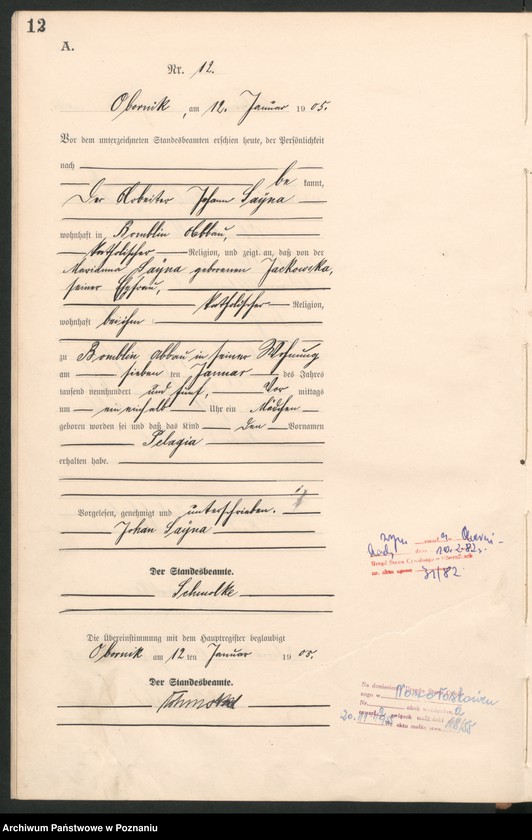 12
A.
Nr. 12.
Obornik, am 12. Januar 1905.
Vor dem unterzeichneten Standesbeamten erschien heute, der Persönlichkeit
nach
be kannt,
Der Arbeiter Johann Sayna
wohnhaft in Bomblin Abbau,
katholischer Religion, und zeigt an, daß von der
Marianna Sayna geborenen Jackowska,
seiner Ehefrau,
katholischer Religion,
wohnhaft bei ihm
zu Bomblin Abbau in seiner Wohnung
am sieben ten Januar des Jahres
tausend neunhundert und fünf, Vor mittags
um ein einhalb Uhr ein Mädchen
geboren worden sei und daß das Kind den Vornamen
Pelagia
erhalten habe.
Vorgelesen, genehmigt und unterschrieben.
Johan Sayna
Der Standesbeamte.
Schmolke
Die Übereinstimmung mit dem Hauptregister beglaubigt
Obornik am 12 ten Januar 1905.
Der Standesbeamte.
Schmolke
zmarł
dnia 10.2.82r.
Urząd Stanu Cywilnego
nr. aktu zgonu 31/82
Nr.
związek małż.
Archiwum Państwowe w Poznaniu